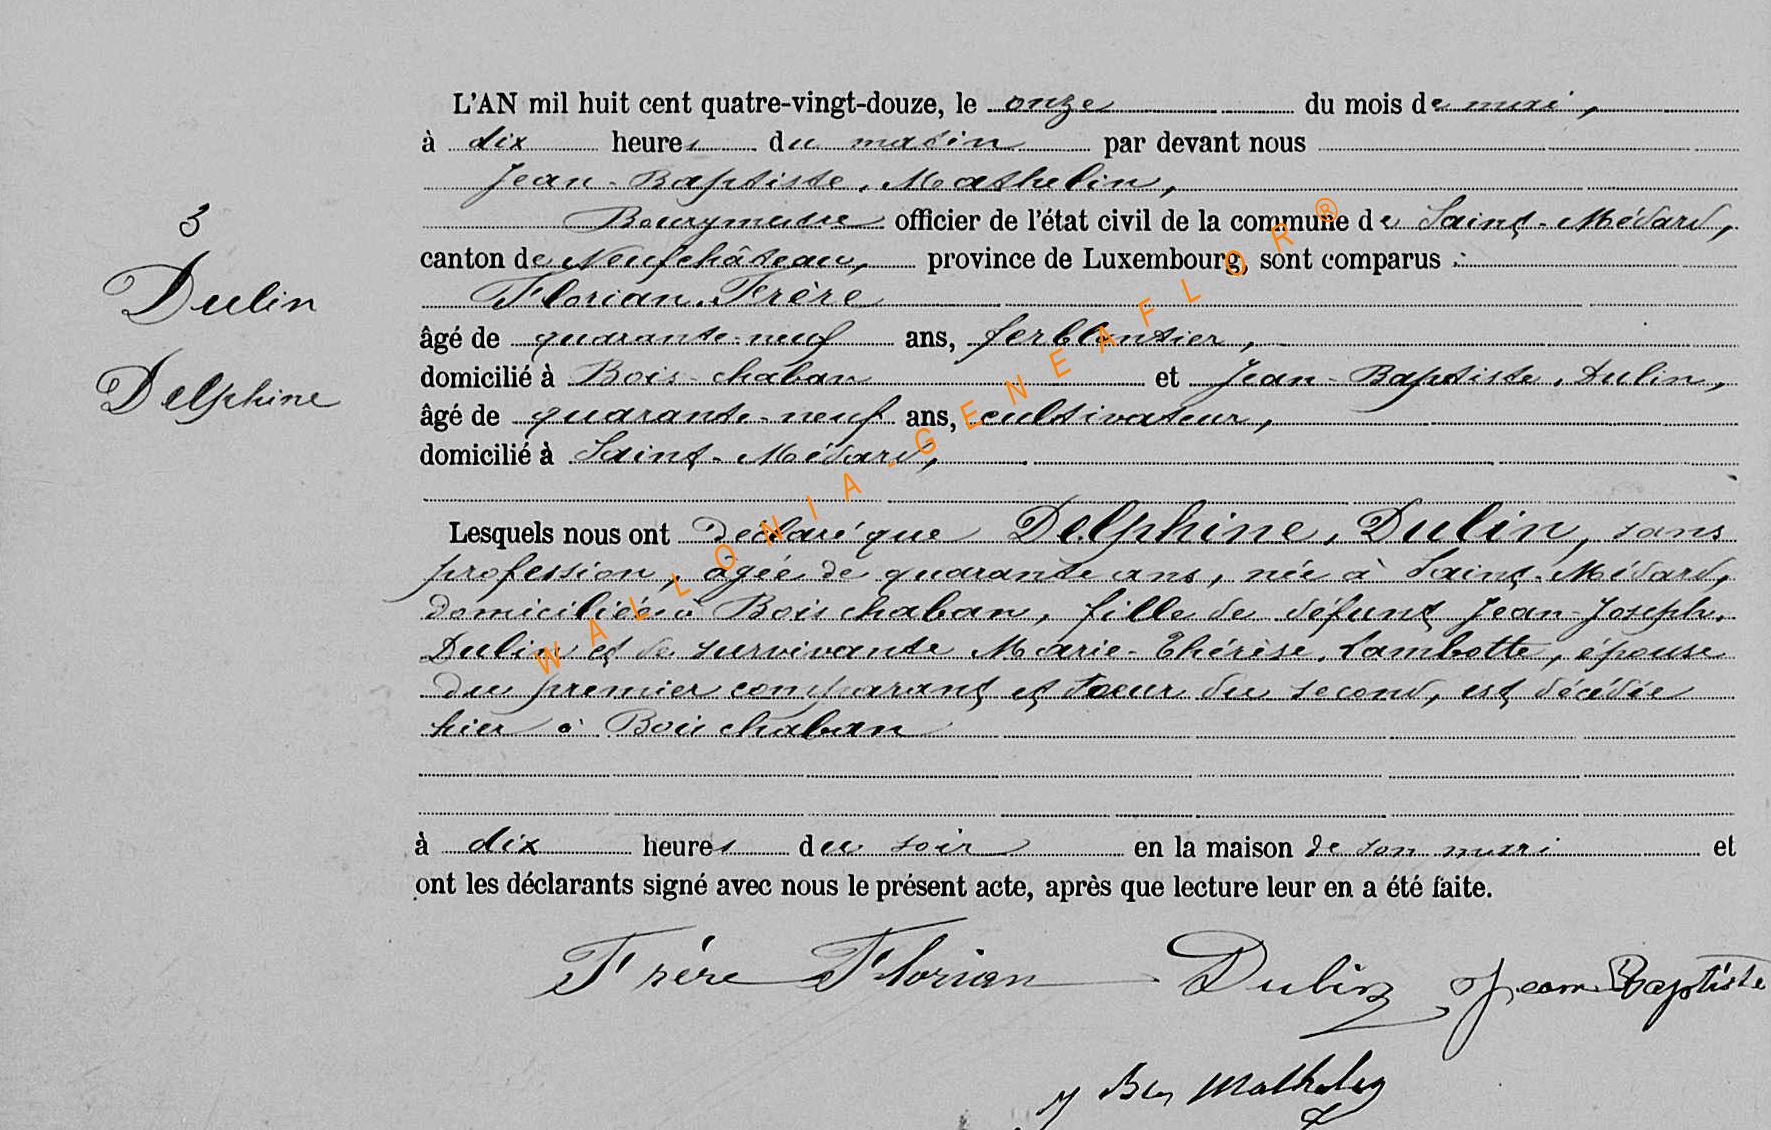 L'AN mil huit cent quatre-vingt-douze, le onze du mois de mari,
à dix heures du matin par devant nous
Jean-Baptiste. Mathelin,
Bourgmestre officier de l'état civil de la commune de Saint-Médard,
canton de Neufchâteau, province de Luxembourg, sont comparus :
Florian. Frère
âgé de quarante-neuf ans, ferblantier,
domicilié à Bois-chaban et Jean-Baptiste. Dulin,
âgé de quarante-neuf ans, cultivateur,
domicilié à Saint-Médard,
3
Dulin
Delphine
Lesquels nous ont déclaré que Delphine. Dulin, sans
profession, âgée de quarante ans, née à Saint-Médard,
domiciliée à Boischaban, fille de défunt Jean-Joseph.
Dulin et de survivante Marie-Thérèse. Lambotte, épouse
du premier comparant et soeur du second, est décédée
hier à Boischaban
à dix heures du soir en la maison de son mari et
ont les déclarants signé avec nous le présent acte, après que lecture leur en a été faite.
Frère Florian Dulin Jean Baptiste
J Bte Mathelin
WALLONIA-GENEAFLOR®